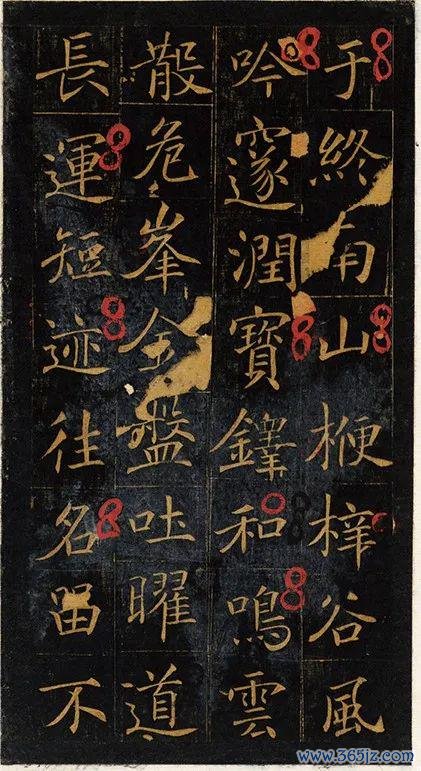 于終南山楩梓谷風
吟邃澗寶鐸和鳴雲
散危峯金盤吐曜道
長運短迹往名留不
www.365jz.com